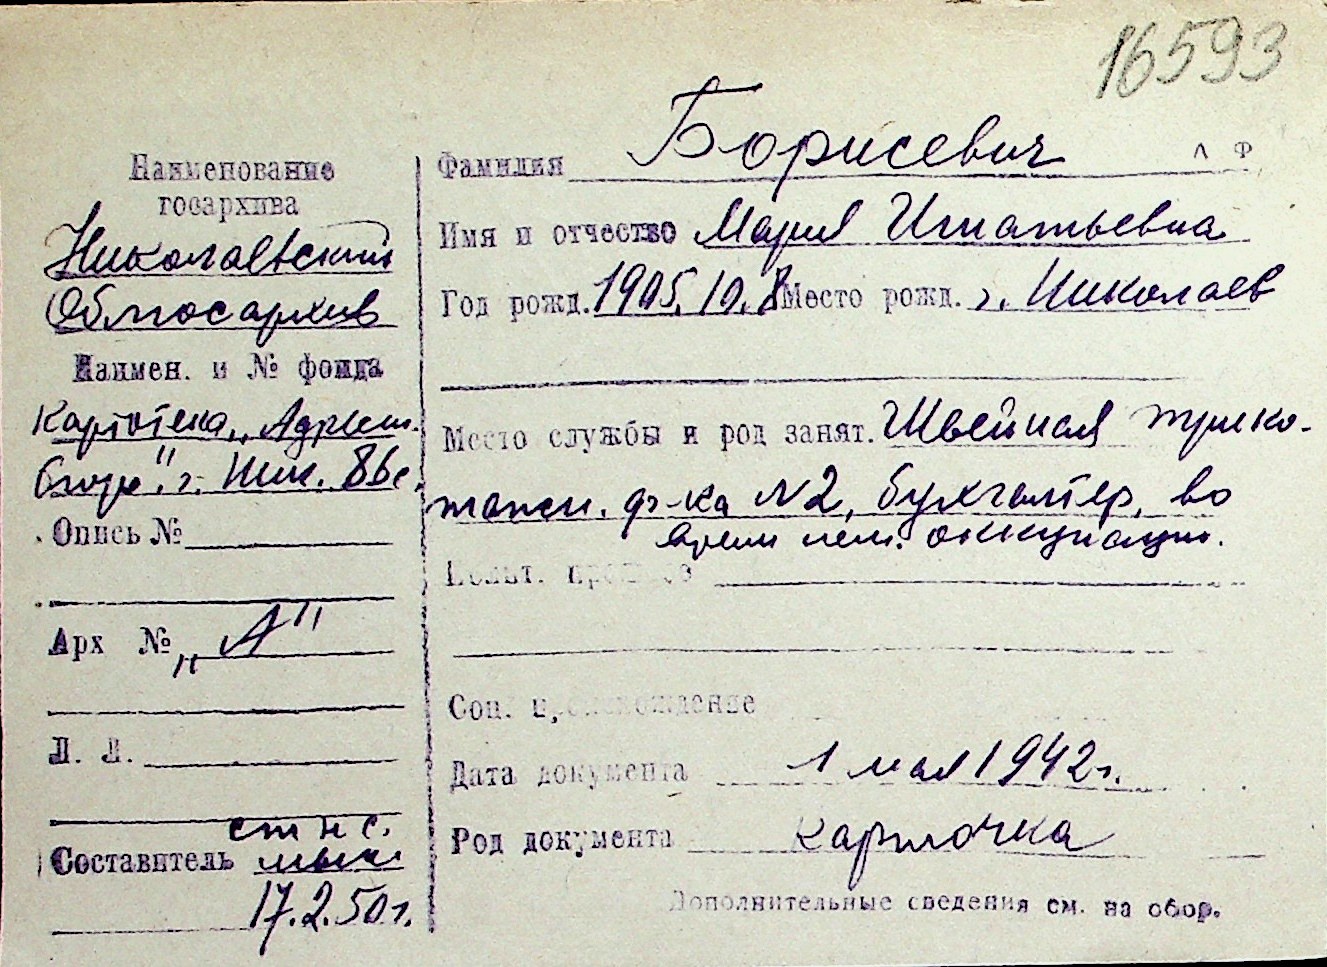 16593
Наименование
госархива
Николаевский
Облгосархив
Наимен. и № фонда
Картотека „Адресн.
бюро" г. Ник. 86с.
Опись №
Арх № „А"
Л. Л.
ст н с.
Составитель
17.2.50г.
Фамилия Борисевич
Л Ф
Имя и отчество Мария Игнатьевна
Год рожд. 1905. 10. 8 Место рожд. г. Николаев
Место службы и род занят. Швейная трико-
тажн. ф-ка N2, бухгалтер, во
время нем. оккупации.
Соц. происхождение
Дата документа 1 мая 1942г.
Род документа карточка
Дополнительные сведения см. на обор.